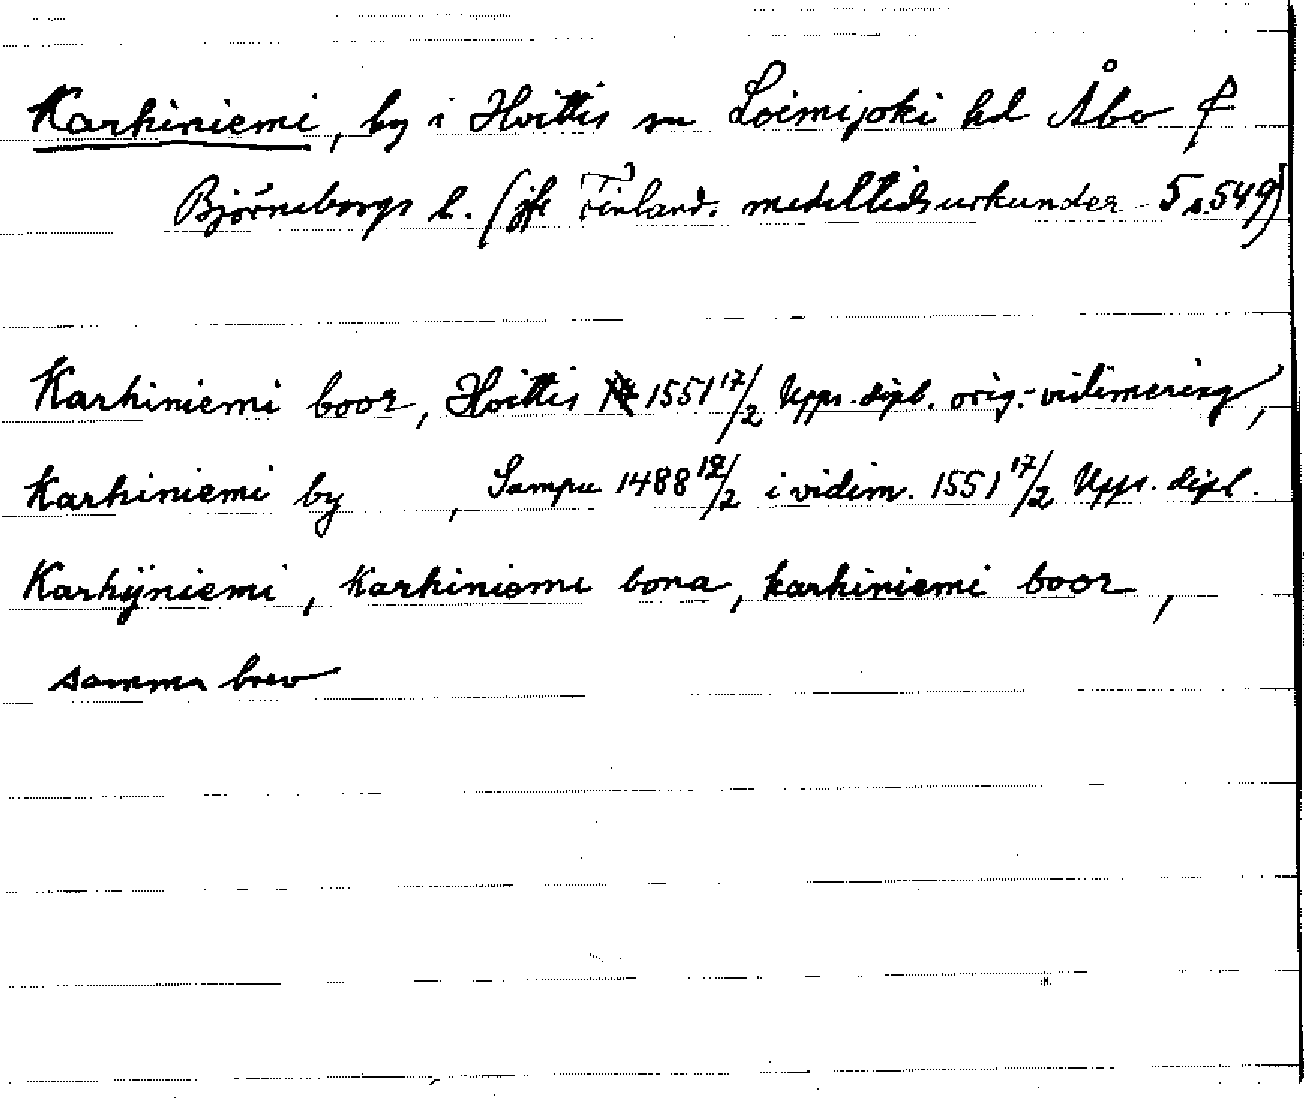 Karhiniemi, by i Hvittis sn Loimijoki hd Åbo &
Björneborgs l. (jfr Finland. medeltidsurkunder 5 s.549)
Karhiniemi boor, Hvittis 1551 17/2 Upps. dipl. orig.-vidimering,
Karhiniemi by , Sampu 1488 12/2 i vidim. 1551 17/2 Upps. dipl.
Karhijniemi, karhiniemi bona, karhiniemi boor,
samma brev